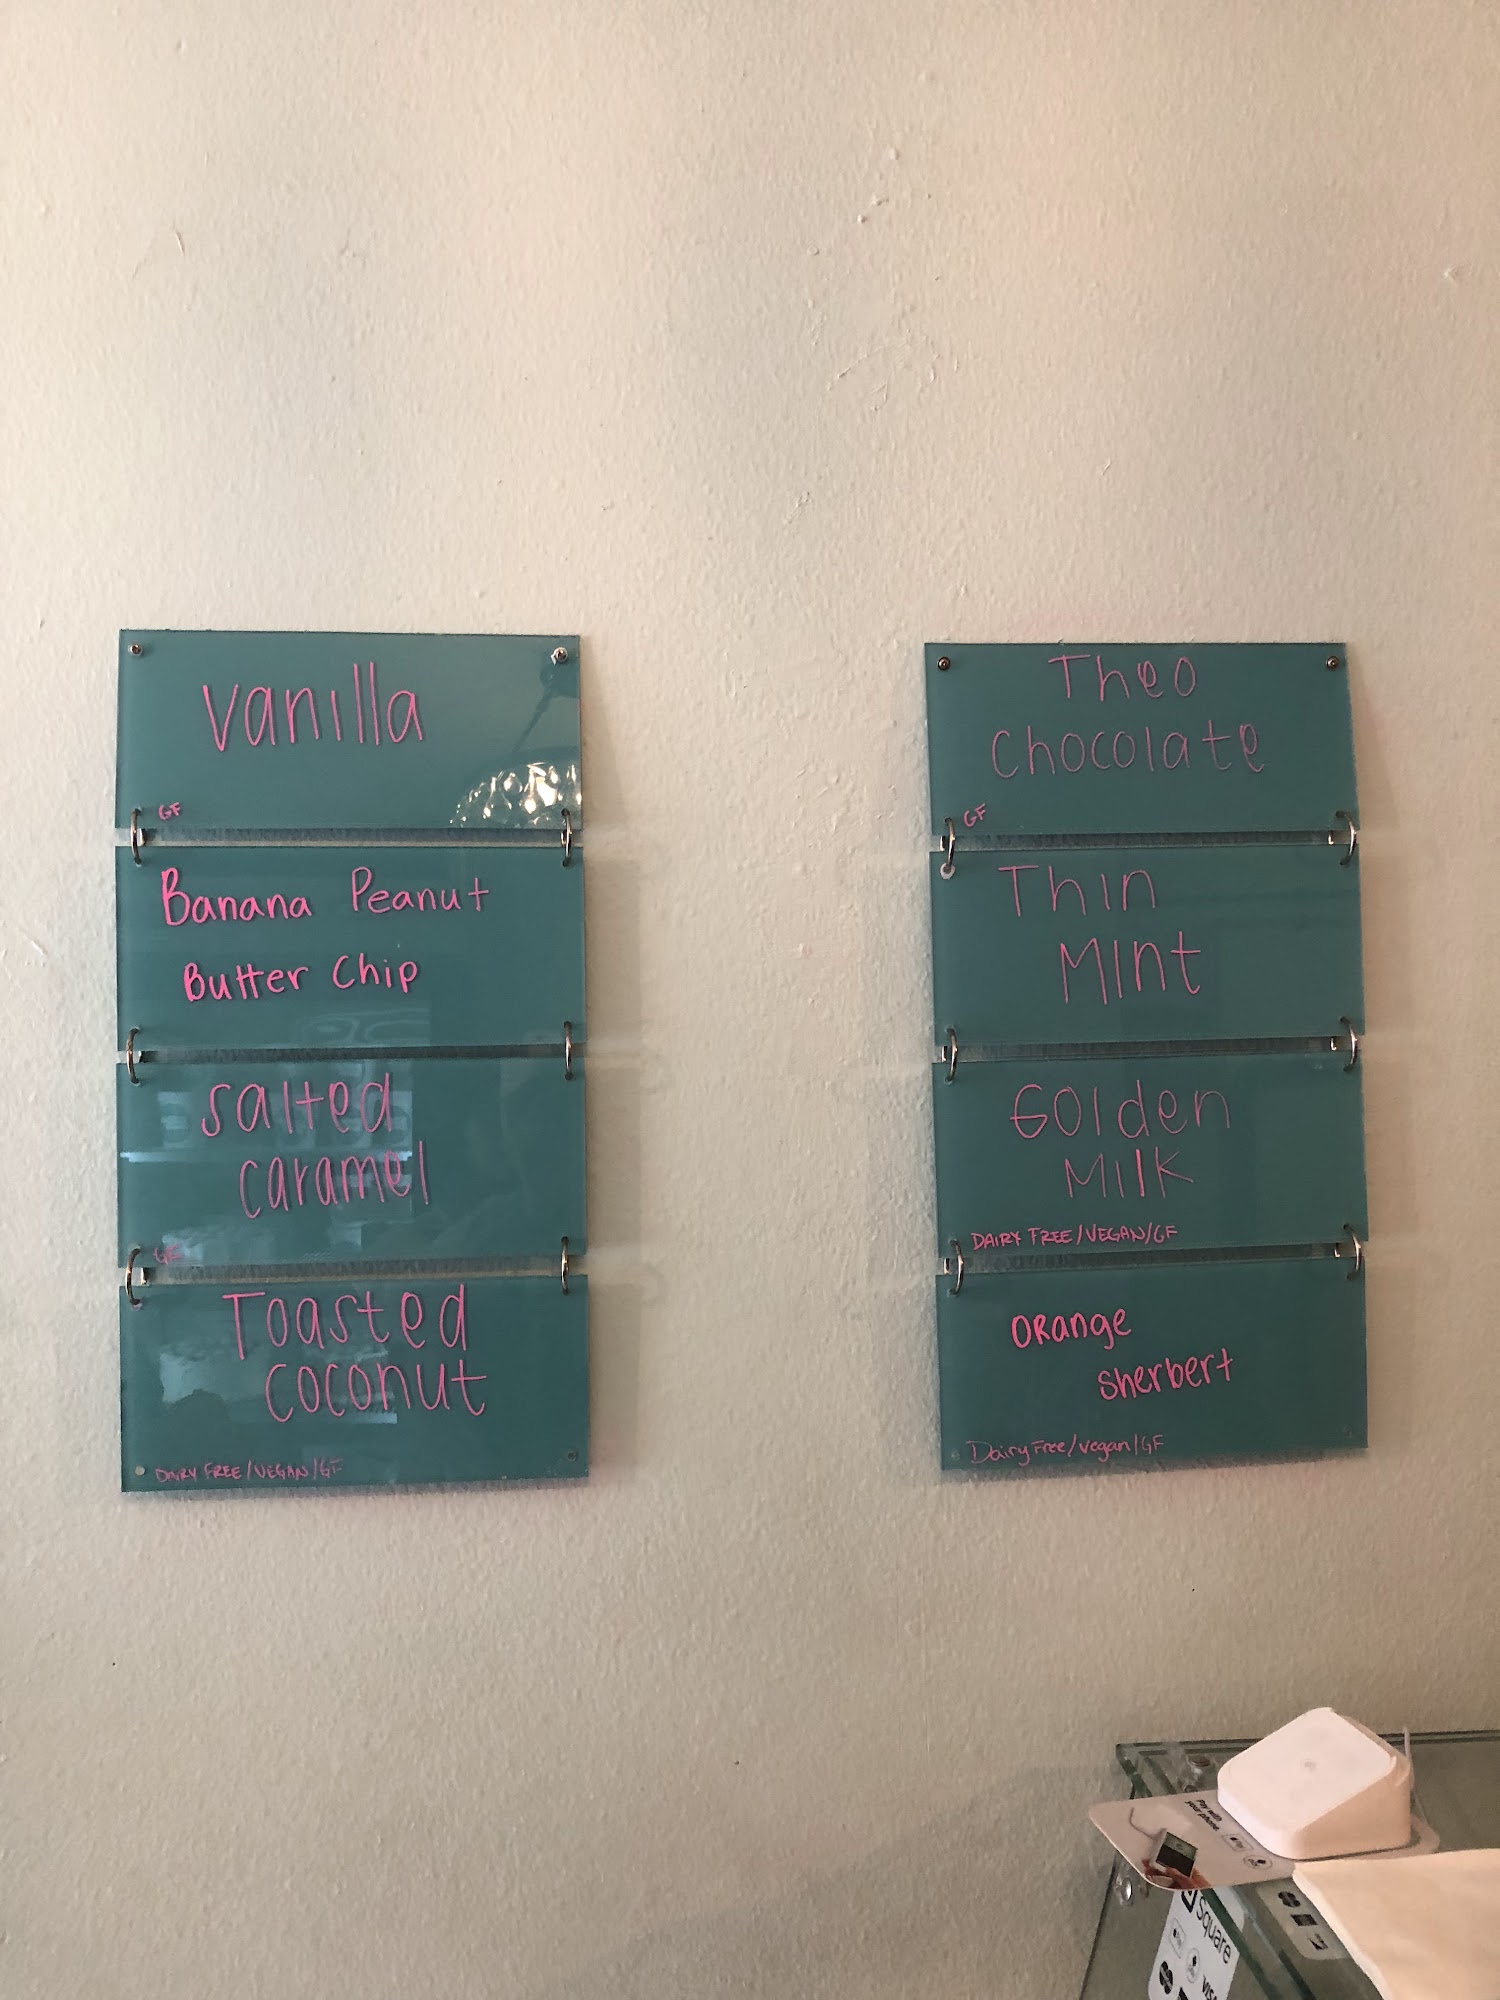 vanilla
GF
Banana Peanut
Butter Chip
salted
caramel
GF
Toasted
coconut
DAIRY FREE/VEGAN/GF
Theo
chocolate
GF
Thin
Mint
Golden
Milk
DAIRY FREE/VEGAN/GF
Orange
sherbert
Dairy Free/vegan/GF
Pay with
your phone.
Square
VISA